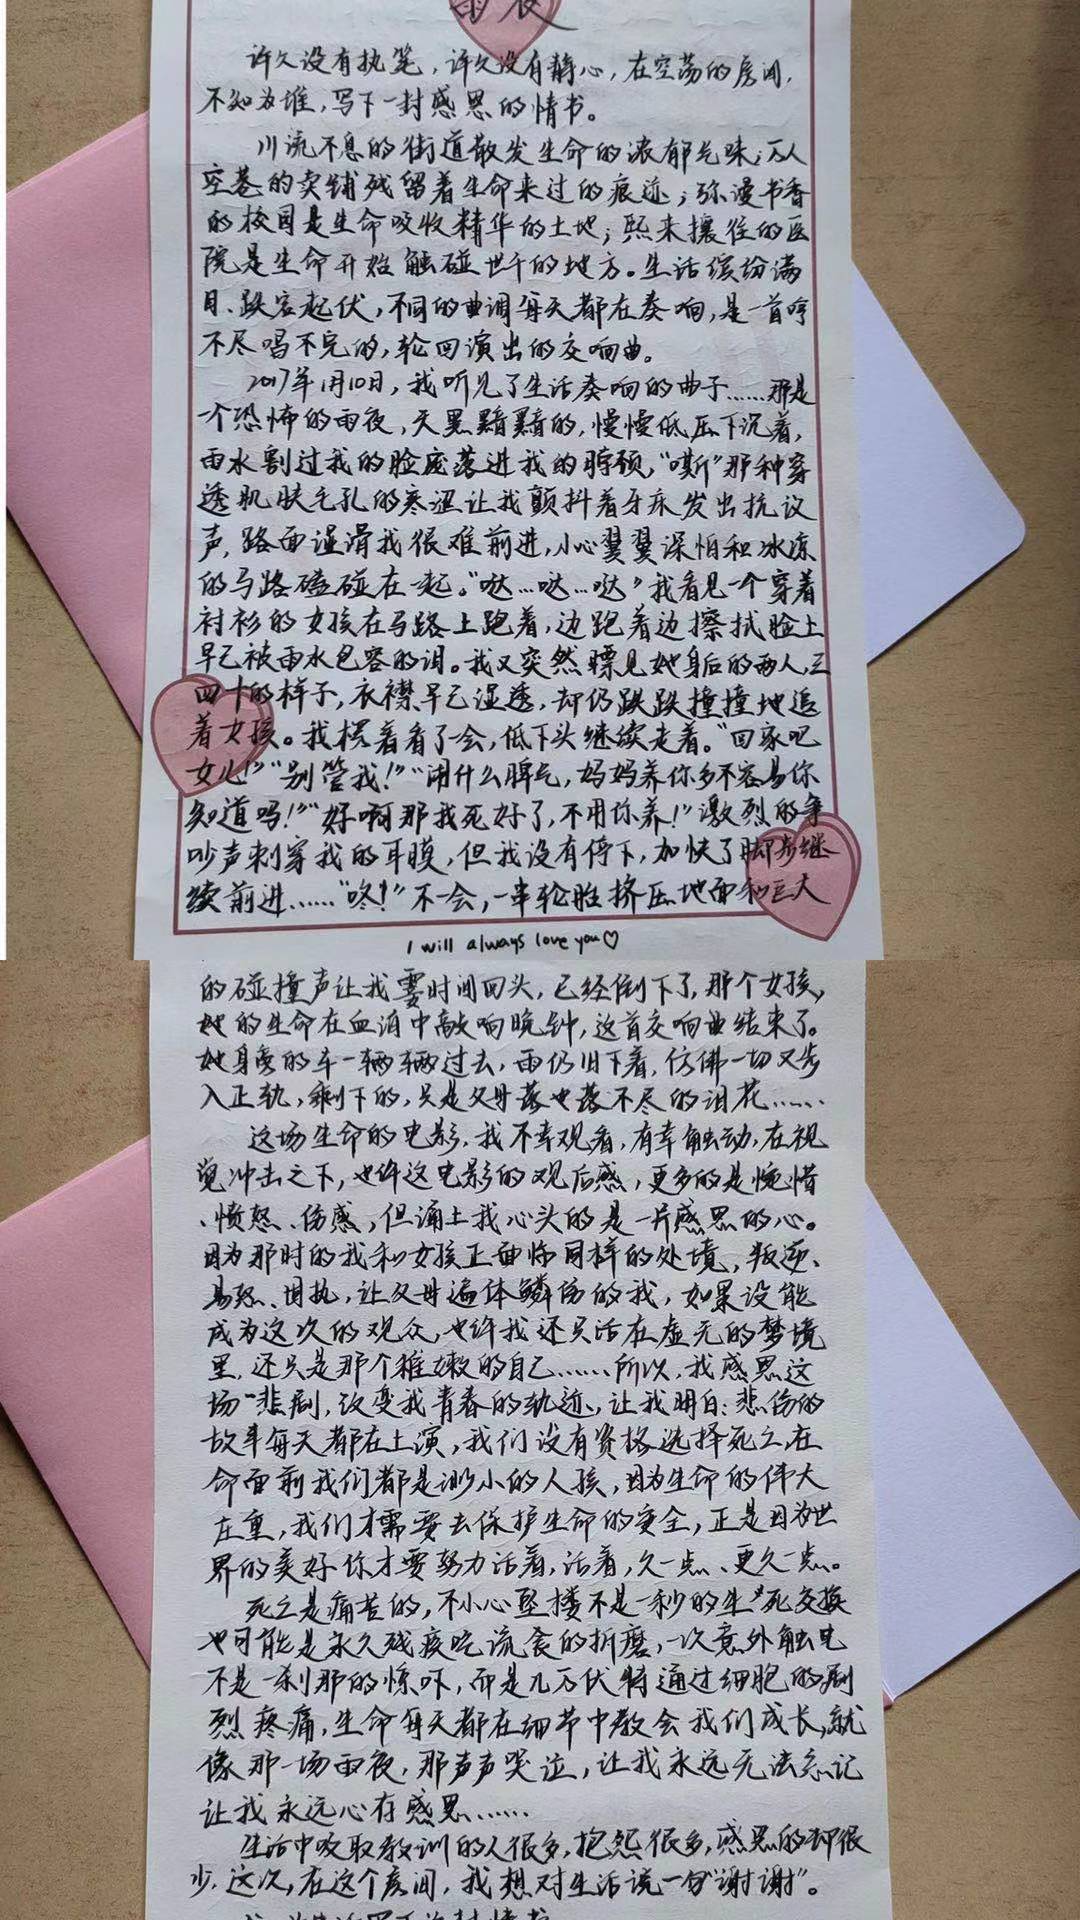 雨夜
许久没有执笔，许久没有静心，在空荡的房间，
不知为谁，写下一封感恩的情书。
川流不息的街道散发生命的浓郁气味；万人
空巷的卖铺残留着生命来过的痕迹；弥漫书香
的校园是生命吸收精华的土地；熙来攘往的医
院是生命开始触碰世间的地方。生活缤纷满
目、跌宕起伏，不同的曲调每天都在奏响，是一首哼
不尽唱不完的，轮回演出的交响曲。
2017年1月10日，我听见了生活奏响的曲子……那是
个恐怖的雨夜，天黑黯黯的，慢慢低压下沉着，
雨水割过我的脸庞落进我的脖颈，“嘶”那种穿
透肌肤毛孔的寒涩让我颤抖着牙床发出抗议
声，路面湿滑我很难前进，小心翼翼深怕和冰冻
的马路磕碰在一起。“哒…哒…哒”我看见一个穿着
衬衫的女孩在马路上跑着，边跑着边擦拭脸上
早已被雨水包容的泪。我又突然瞟见她身后的两人，三
四十的样子，衣襟早已湿透，却仍跌跌撞撞地追
着女孩。我楞着看了会，低下头继续走着。“回家吧
女儿！”“别管我！”“闹什么脾气，妈妈养你多不容易你
知道吗！”“好啊那我死好了，不用你养！”激烈的争
吵声刺穿我的耳膜，但我没有停下，加快了脚步继
续前进……“咚！”不一会，一串轮胎挤压地面和巨大
I will always love you♡
的碰撞声让我霎时间回头，已经倒下了，那个女孩，
她的生命在血泊中敲响晚钟，这首交响曲结束了。
她身旁的车一辆辆过去，雨仍旧下着，仿佛一切又步
入正轨，剩下的，只是父母落也落不尽的泪花……
这场生命的电影，我不幸观看，有幸触动，在视
觉冲击之下，也许这电影的观后感，更多的是惋惜
、愤怒、伤感，但涌上我心头的是一片感恩的心。
因为那时的我和女孩正面临同样的处境，叛逆、
易怒、固执，让父母遍体鳞伤的我，如果没能
成为这次的观众，也许我还只活在虚无的梦境
里，还只是那个稚嫩的自己……所以，我感恩这
场悲剧，改变我青春的轨迹，让我明白：悲伤的
故事每天都在上演，我们没有资格选择死亡，在
命面前我们都是渺小的人孩，因为生命的伟大
庄重，我们才需要去保护生命的安全，正是因为世
界的美好你才要努力活着，活着，久一点、更久一点。
死亡是痛苦的，不小心坠楼不是一秒的生死交换
也可能是永久残疾吃流食的折磨，一次意外触电
不是一刹那的惊吓，而是几万伏特通过细胞的剧
烈疼痛，生命每天都在细节中教会我们成长，就
像那一场雨夜，那声声哭泣，让我永远无法忘记
让我永远心存感恩……
生活中吸取教训的人很多，抱怨很多，感恩的却很
少，这次，在这个房间，我想对生活说一句“谢谢”。